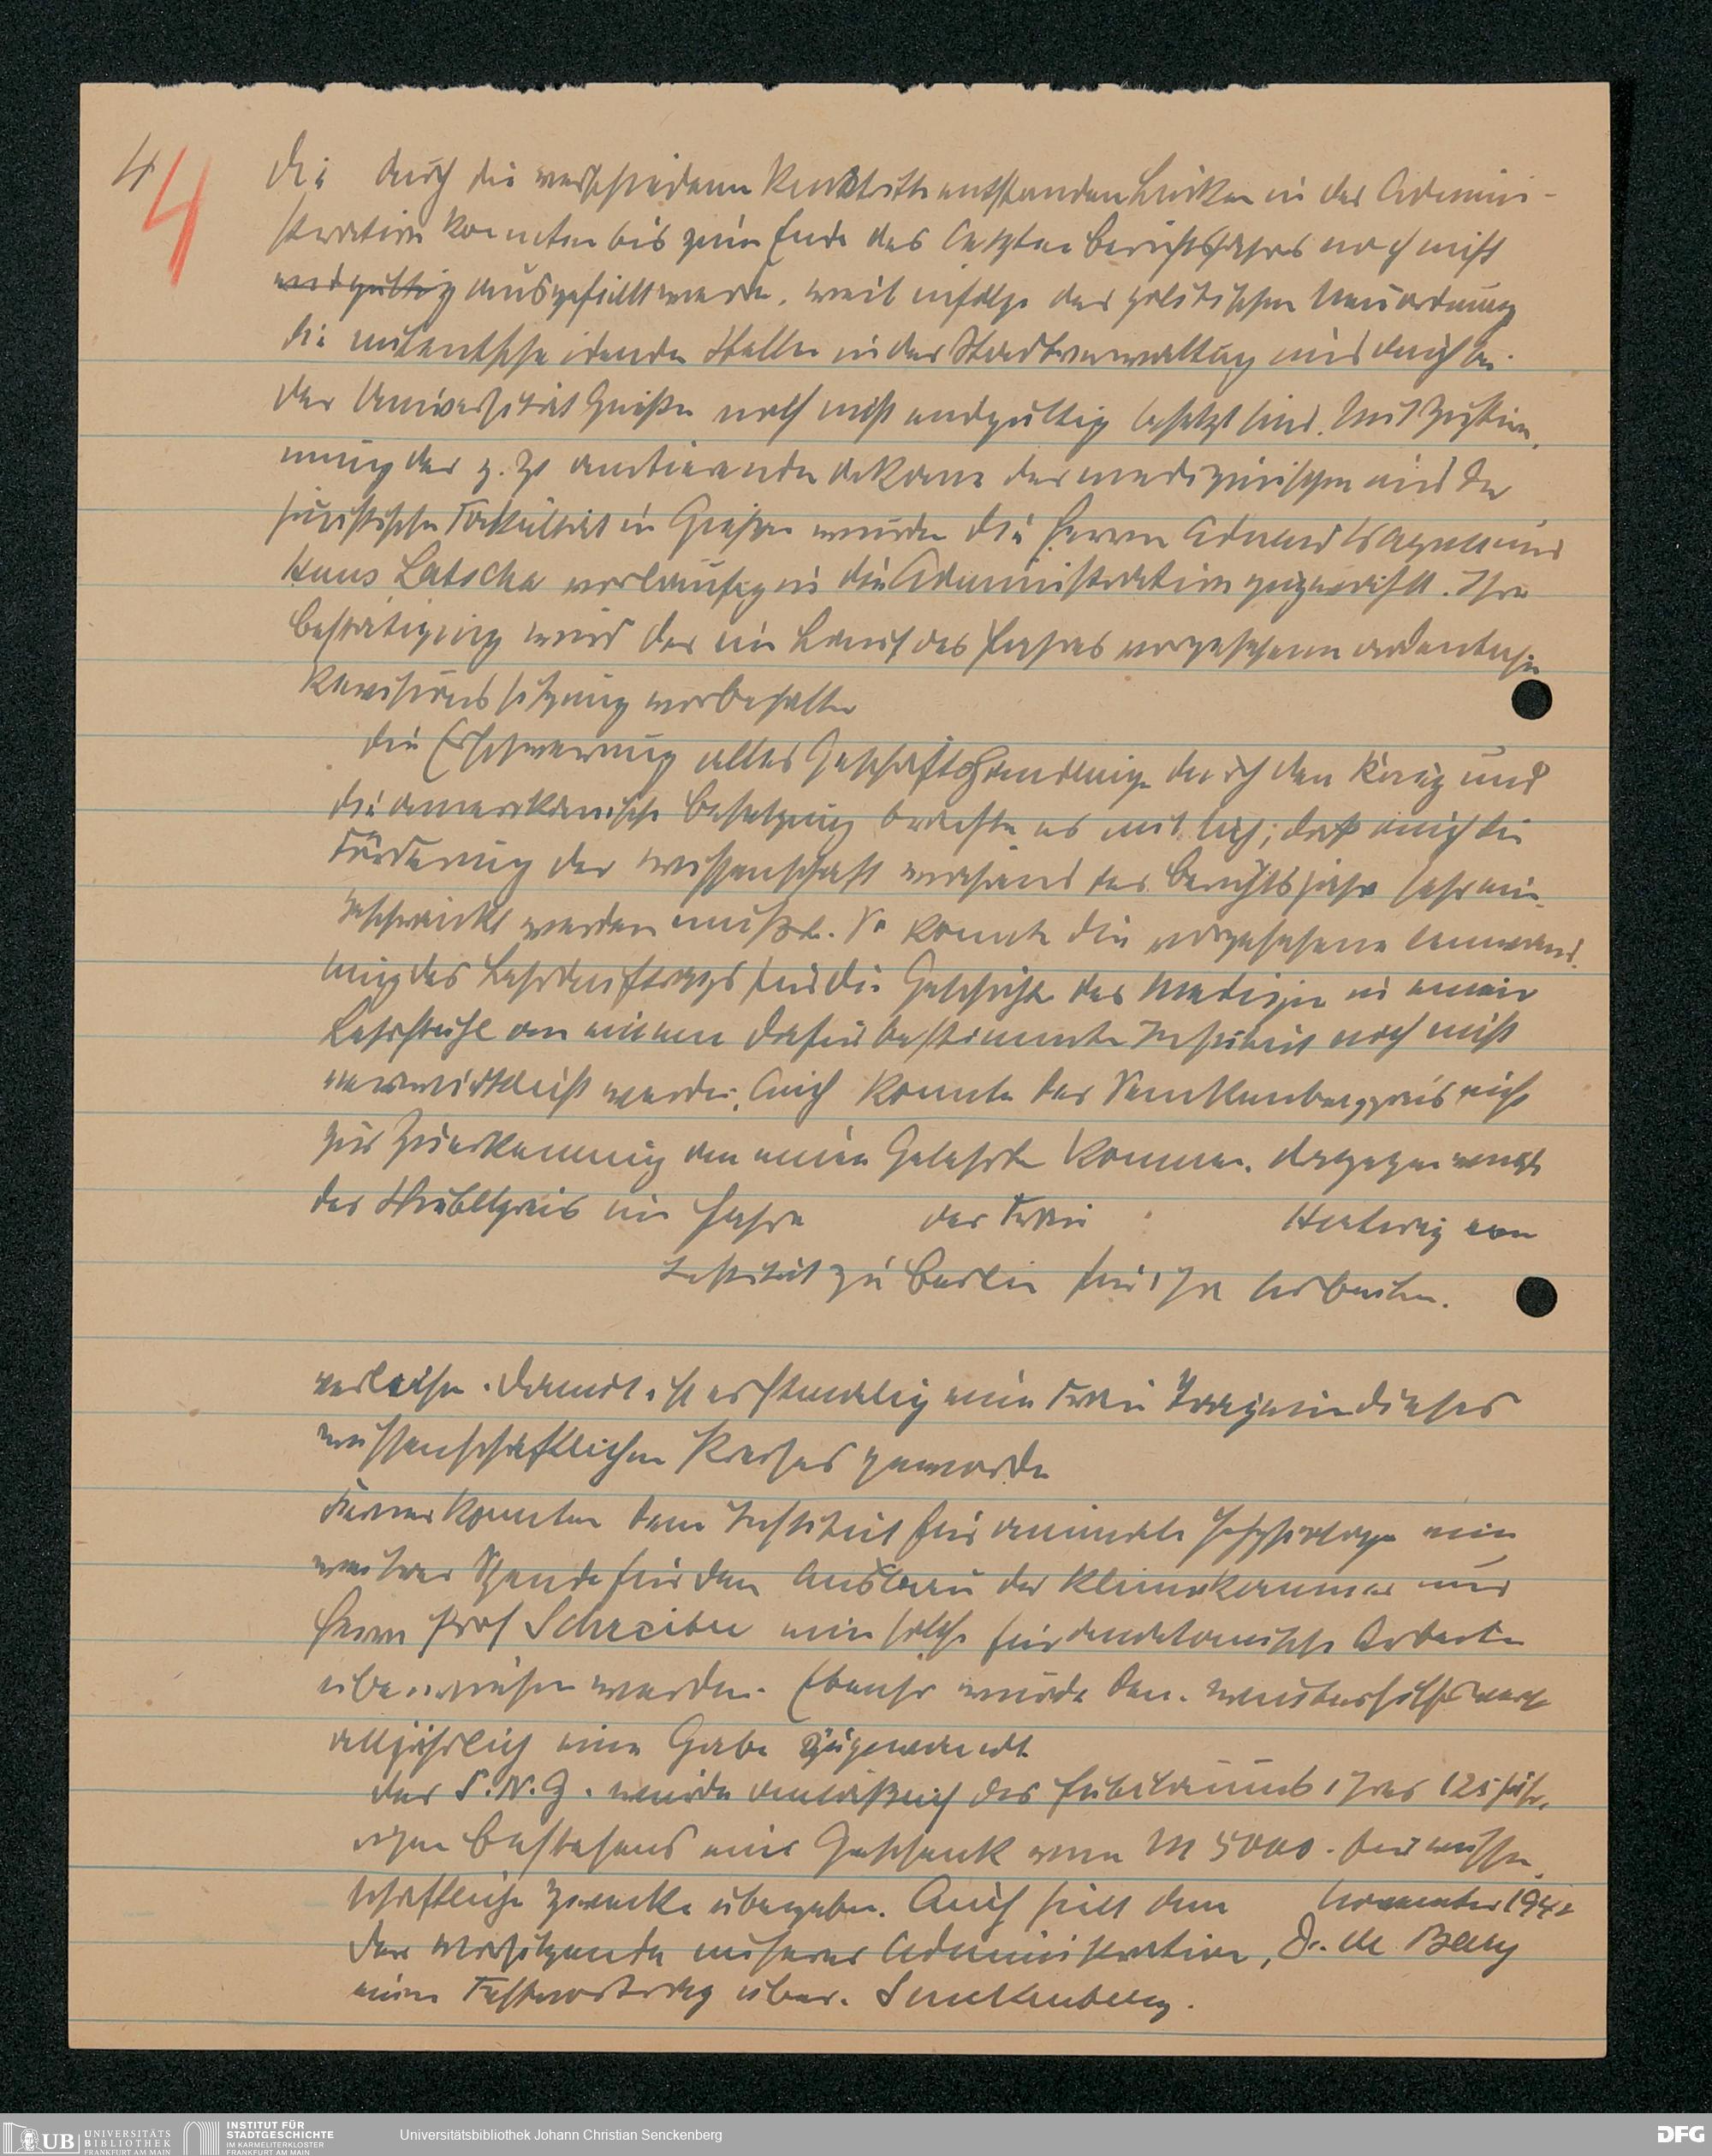 4 4
Die durch die verschiedenen Rücktritte entstanden Lücken in der Admini-
stration konnten bis zum Ende des letzten Berichtsjahres noch nicht
endgültig ausgefüllt werden, weil infolge der politischen Neuordnung
die mitentscheidenden Stellen in der Stadtverwaltung und auch bei
der Universität Gießen noch nicht endgültig besetzt sind. Mit Zustim-
mung der z. Zt amtierenden Dekane der medizinischen und der
juristischen Fakultät in Gießen wurden die Herren Eduard Wagner und
Hans Latscha vorläufig in die Administration zugewählt. Ihre
Bestätigung wird der im Lauf des Jahres vorgesehenen ordentlichen
Revisionssitzung vorbehalten
Die Erschwerung aller Geschäftshandlungen durch den Krieg und
die amerikanische Besetzung brachte es mit sich, daß auch die
Förderung der Wissenschaft während der Berichtsjahre sehr ein-
geschränkt werden mußte. So konnte die vorgesehene Umwand-
lung des Lehrauftrags für die Geschichte der Medizin in einen
Lehrstuhl an einem dafür bestimmten Institut noch nicht
verwirklicht werden. Auch konnte der Senckenbergpreis nicht
zur Zuerkennung an einen Gelehrten kommen. Dagegen wurde
der Stiebelpreis im Jahre der Frau Hertwig vom
Institut zu Berlin für ihre Arbeiten.
verliehen. Damit ist erstmalig eine Frau Trägerin dieses
wissenschaftlichen Preises geworden
Ferner konnten dem Institut für animale Physiologie eine
weitere Spende für den Ausbau der Klimakammer und
Herrn Prof Schreiber eine solche für anatomische Arbeiten
überwiesen werden. Ebenso wurde dem Winterhilfswerk
alljährlich eine Gabe zugewandt
Der S.N.G. wurde anläßlich des Jubiläums ihres 125 jähr-
igen Bestehens ein Geschenk von M 5000. für wissen-
schaftliche Zwecke übergeben. Auch hielt den November 1942
der Vorsitzende unserer Administration, Dr. de Bary
einen Festvortrag über Senckenberg.
UB UNIVERSITÄTS
BIBLIOTHEK
FRANKFURT AM MAIN
INSTITUT FÜR
STADTGESCHICHTE
IM KARMELITERKLOSTER
FRANKFURT AM MAIN
Universitätsbibliothek Johann Christian Senckenberg
DFG